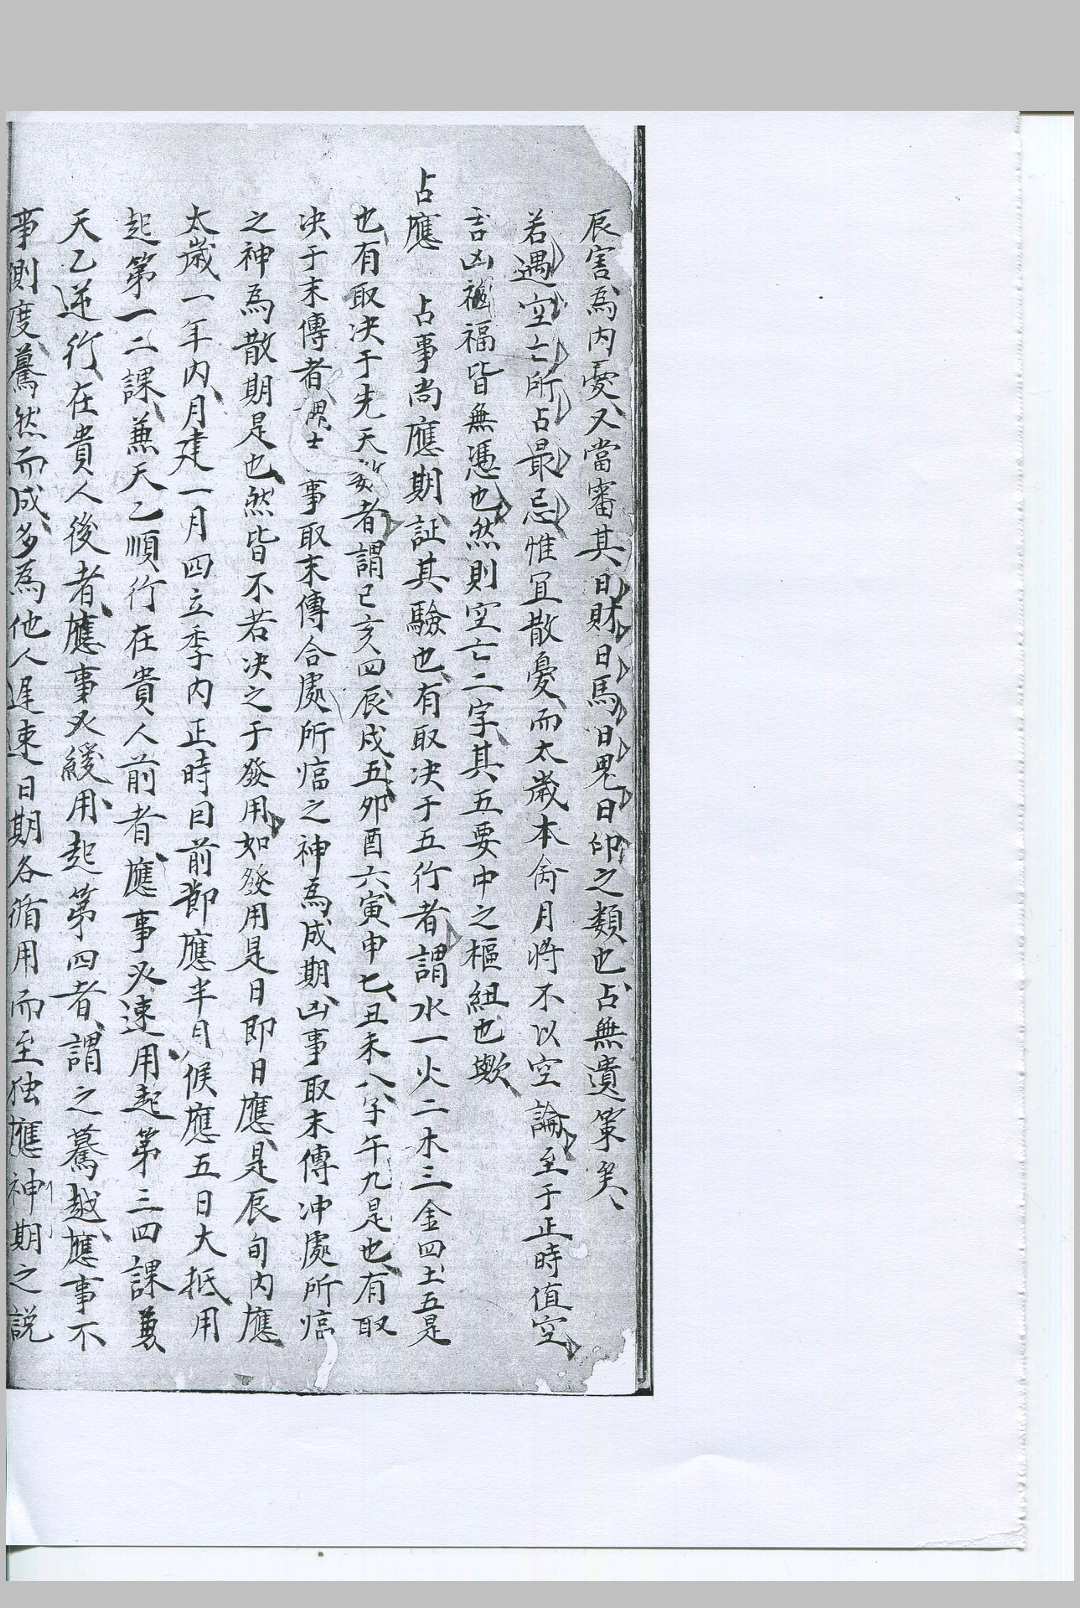 辰害為内憂又當審其日財日馬日鬼日印之類也占無遺策矣
若遇空亡所占最忌惟冝散憂而太歲本命月將不以空論至于正時值空
言凶禍福皆無憑也然則空亡二字其五要中之樞紐也歟
占應 占事尚應期証其驗也有取决于五行者謂水一火二木三金四土五是
也有取决于先天数者謂已亥四辰戍五夘酉六寅申七丑未八子午九是也有取
决于末傳者謂士 事取末傳合處所臨之神為成期凶事取末傳冲處所臨
之神為散期是也然皆不若决之于發用如發用是日即日應是辰旬内應
太歲一年内月建一月四立季内正時目前節應半月候應五日大抵用
起第一二課兼天乙順行在貴人前者應事必速用起第三四課兼
天乙逆行在貴人後者應事必緩用起第四者謂之驀越應事不
事測度驀然而成多為他人遲速日期各循用而至独應神期之説